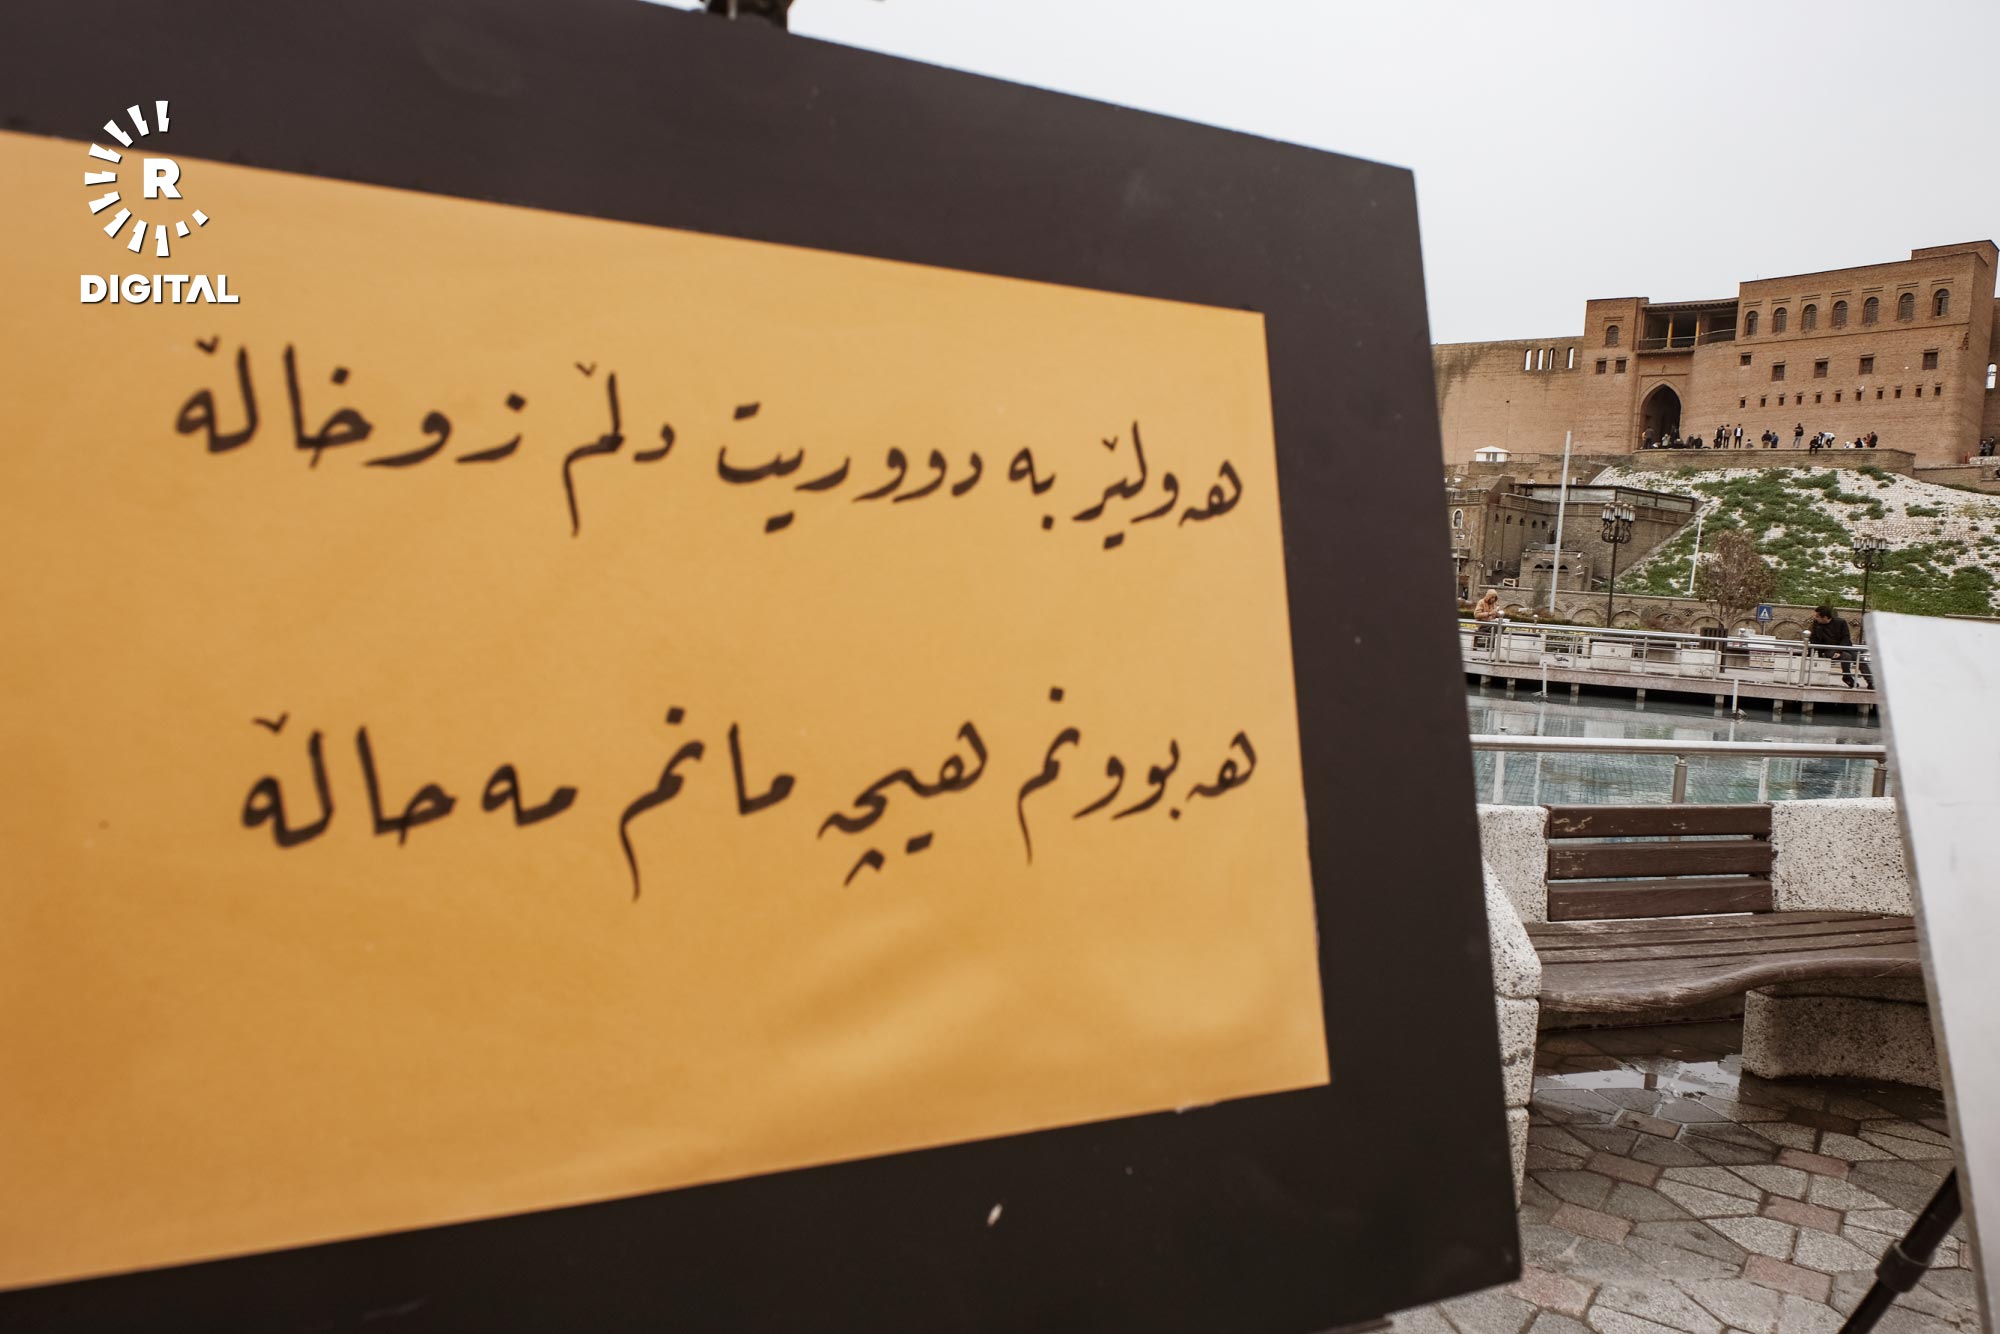 R
DIGITAL
هەولێر بە دووریت دڵم زوخاڵە
هەبوونم هیچ مانم مەحاڵە